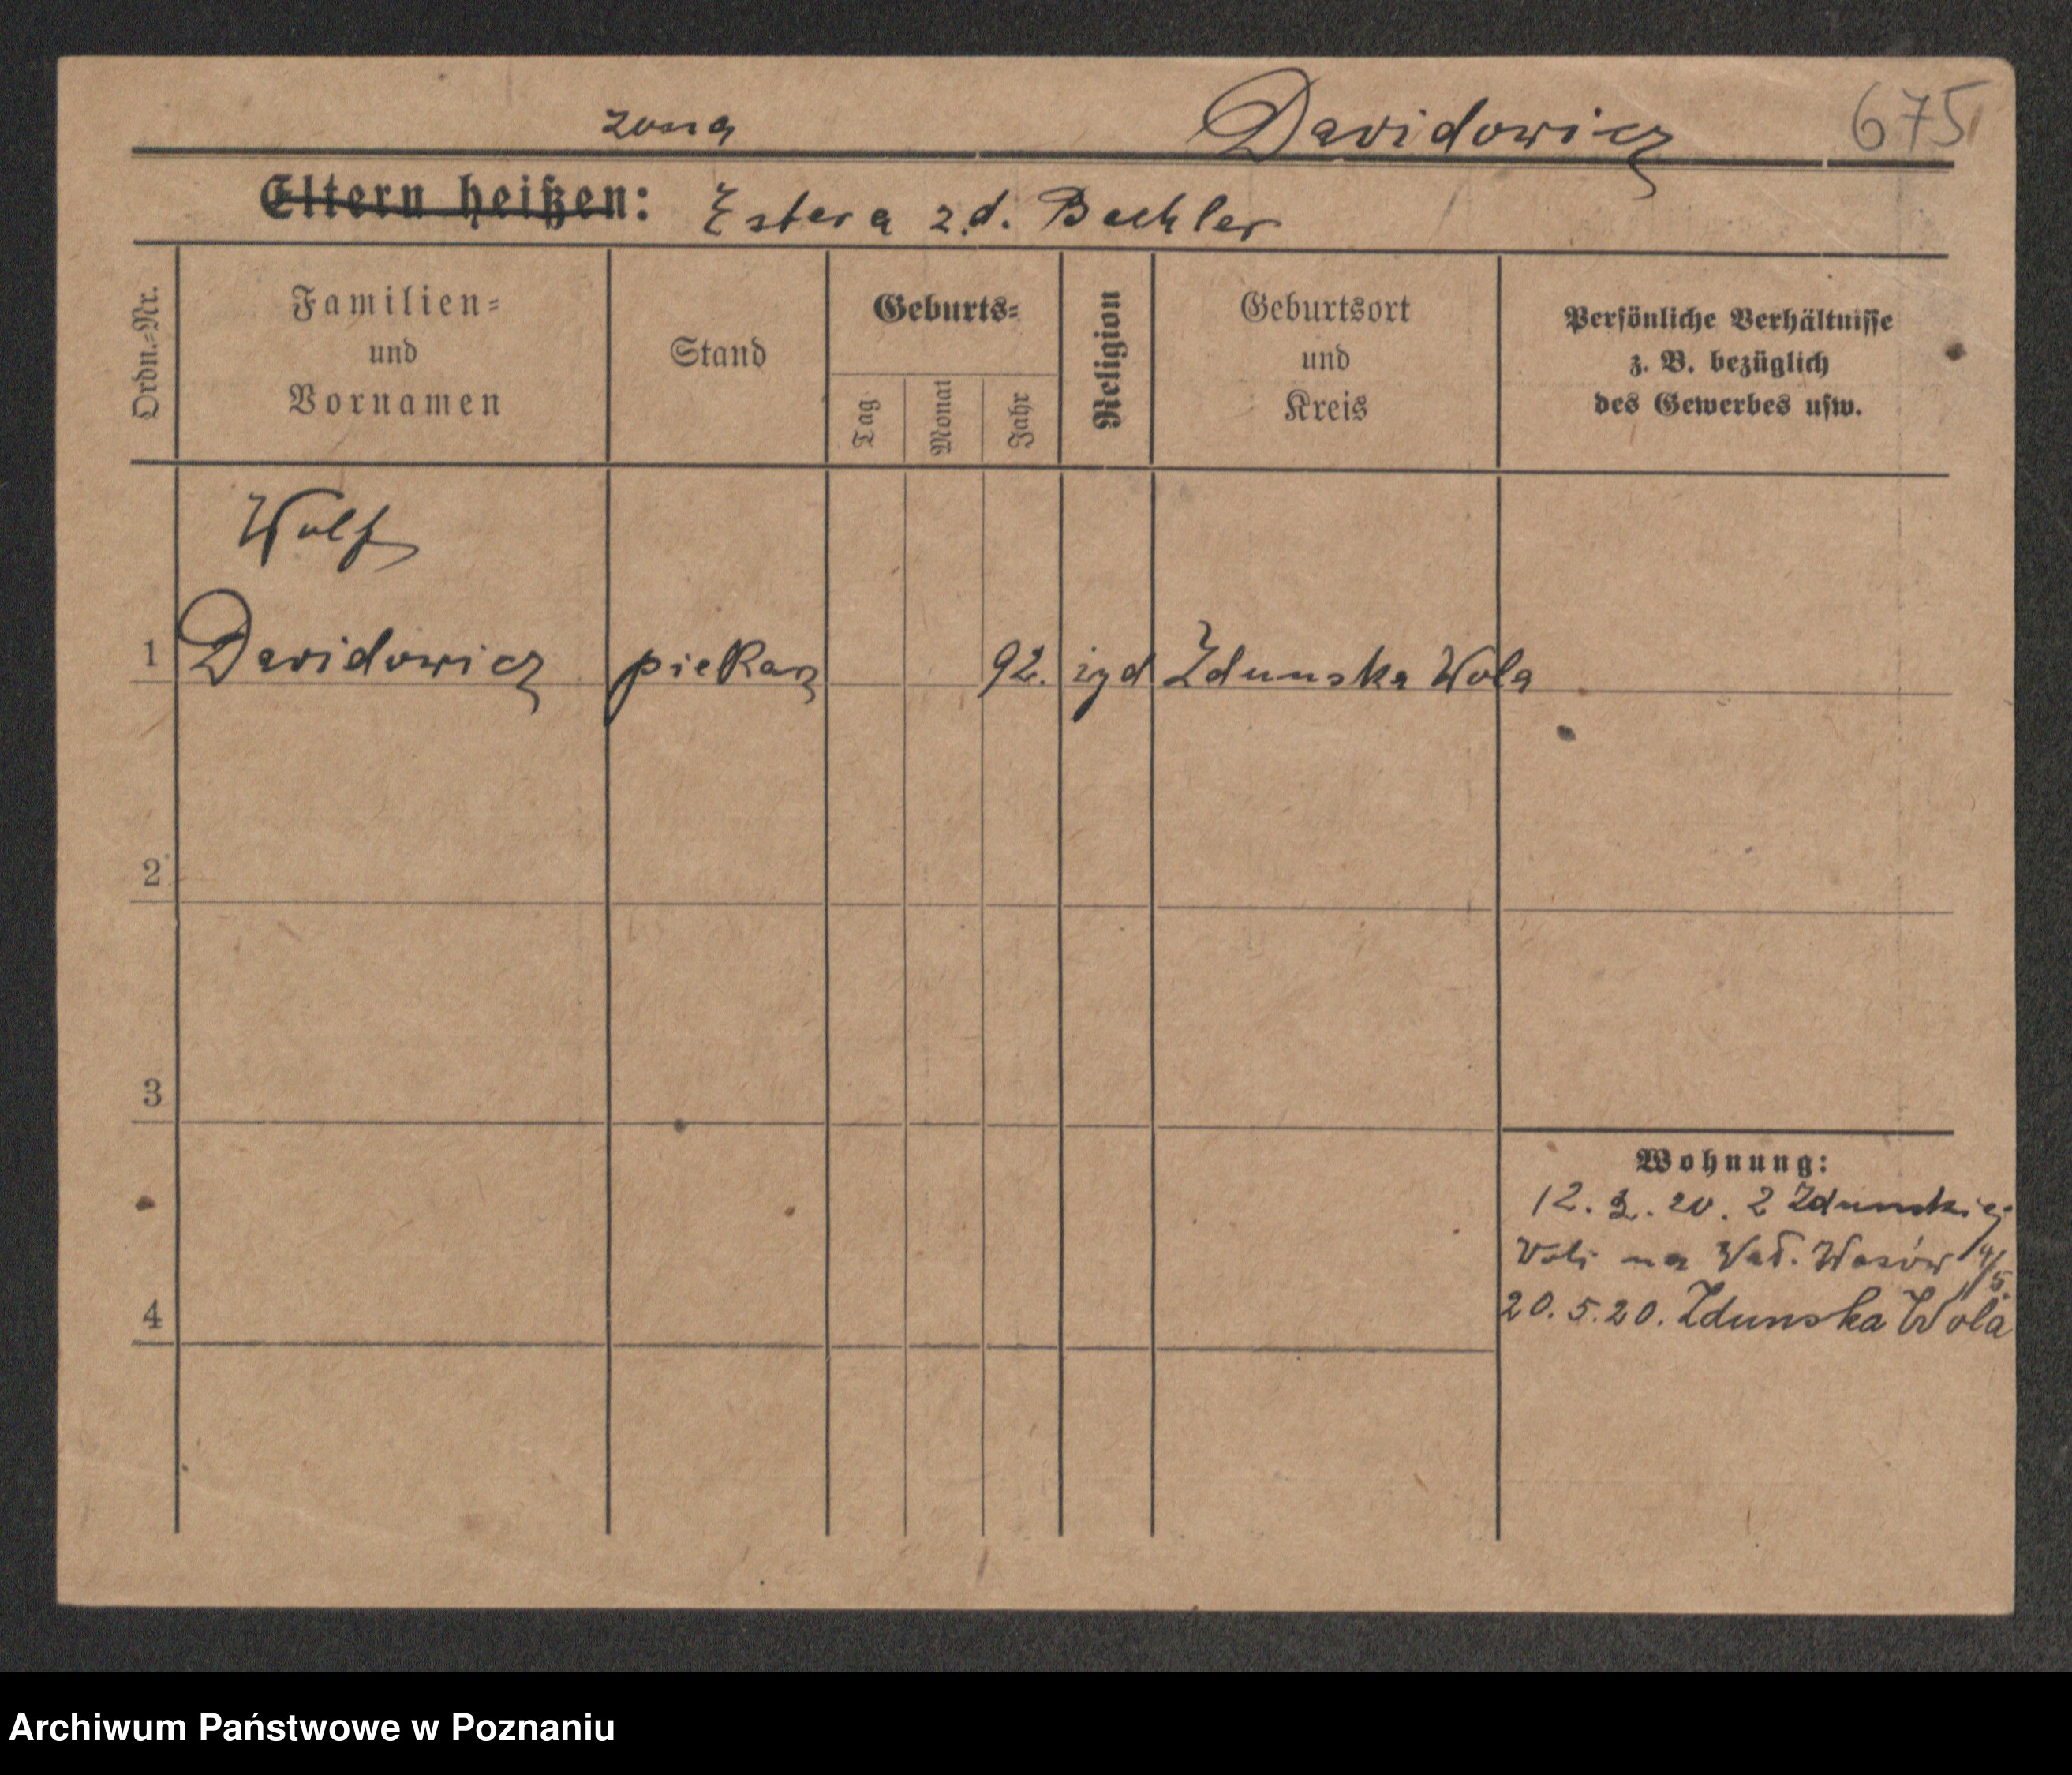 żona Davidowicz 675
Eltern heißen: Estera z.d. Bachler
Ordn.-Nr. Familien- und Vornamen Stand Geburts- Tag Monat Jahr Religion Geburtsort und Kreis Persönliche Verhältnisse z. B. bezüglich des Gewerbes usw.
Wolf
1 Davidowicz piekarz 92. żyd Zdunska Wola
2
3
Wohnung:
12. 2. 20. z Zdunskiej
Woli na 4/5.
4 20. 5. 20. Zdunska Wola
Archiwum Państwowe w Poznaniu